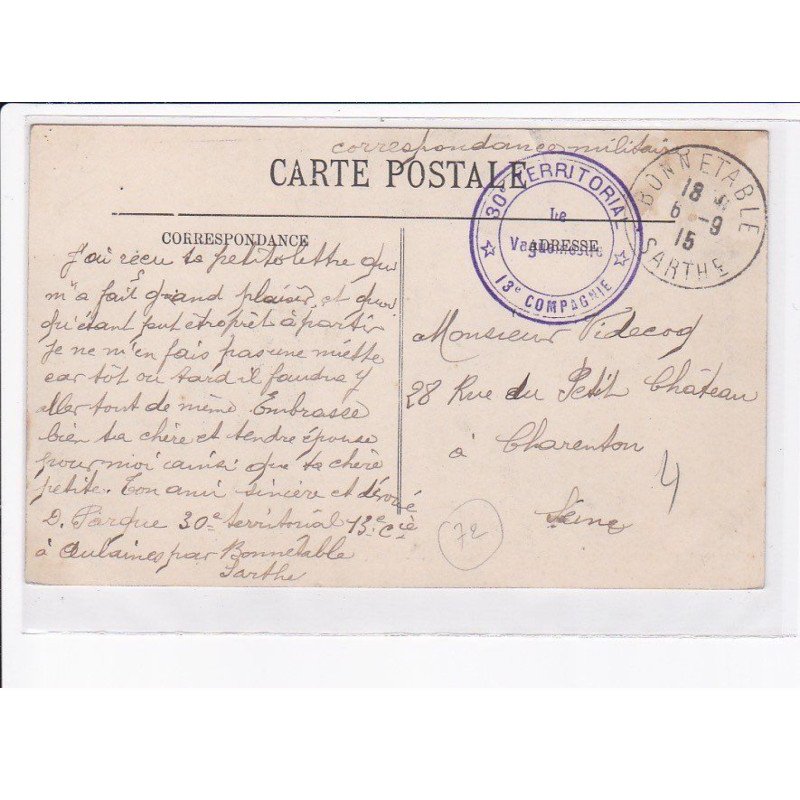 correspondance militaire
CARTE POSTALE
CORRESPONDANCE
ADRESSE
30e TERRITORIAL
Le
Vaguemestre
13e COMPAGNIE
BONNETABLE
18
6 - 9
15
SARTHE
J'ai reçu ta petite lettre qui
m'a fait grand plaisir, et quoi
qu'étant prêt à partir
Je ne m'en fais pas une miette
car tôt ou tard il faudra y
aller tout de même Embrasse
bien ta chère et tendre épouse
pour moi ainsi que ta chère
petite. Ton ami sincère et dévoué
D. Parque 30e territorial 13e Cie
à Aulaines par Bonnetable
Sarthe
Monsieur Videcoq
28 Rue du Petit Château
à Charenton
Seine
4
72